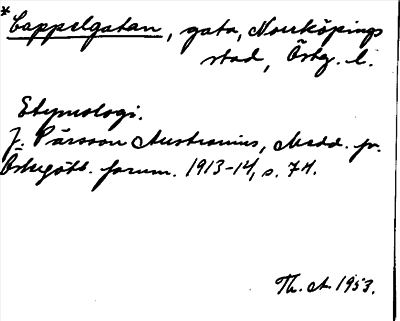 *Cappelgatan, gata, Norrköpings
stad, Östg. l.
Etymologi.
J. Pärsson Austronius, Medd. fr.
Östergötl. fornm. 1913-14, s. 74.
Th. A. 1953.